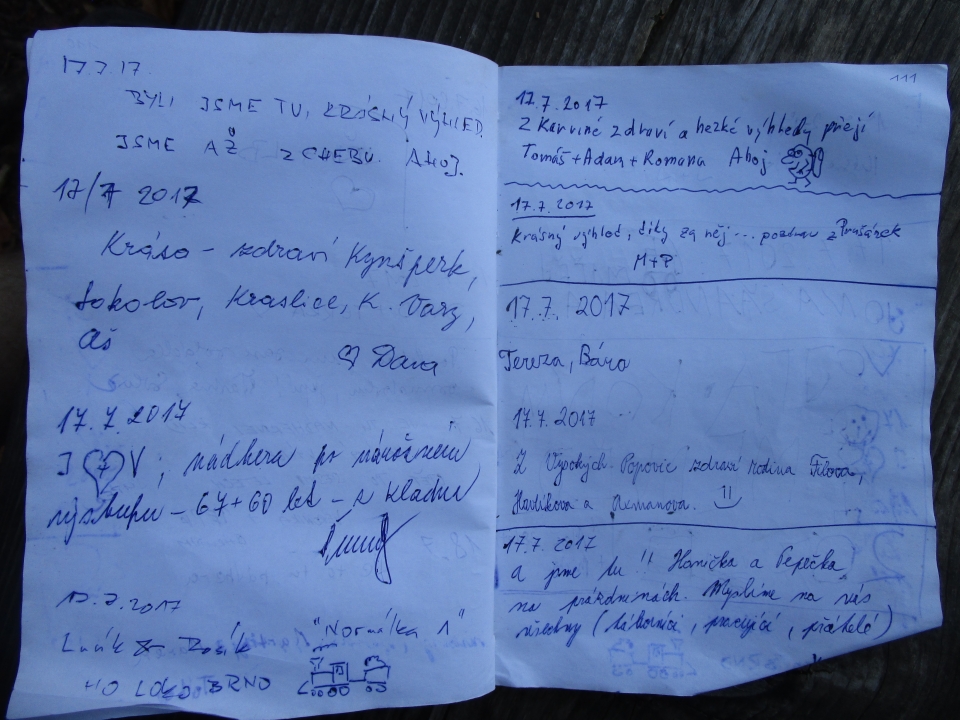 17.7.17.
BYLI JSME TU, KRÁSNÝ VÝHLED.
JSME AŽ Z CHEBU. AHOJ.
17/7 2017
Kráso - zdraví Kynšperk,
Sokolov, Kraslice, K. Vary,
Aš
Dana
17.7.2017
I V, nádhera po náročném
výstupu - 67+60 let - z Kladna
17.7.2017
Lucík & "Normálka 1"
HO LOKO BRNO
111
17.7.2017
Z Karviné zdraví a hezké výhledy přejí
Tomáš+Adam+Romana Ahoj
17.7.2017
Krásný výhled, díky za něj... pozdrav z Prušánek
M+P
17.7. 2017
Tereza, Bára
17.7.2017
Z Vysokých Popovic zdraví rodina Fílova,
Havlíkova a
17.7.2017
a jsme tu!! Hanička a Pepečka
na prázdninách. Myslíme na vás
všechny (táborníci, pracující, přátelé)